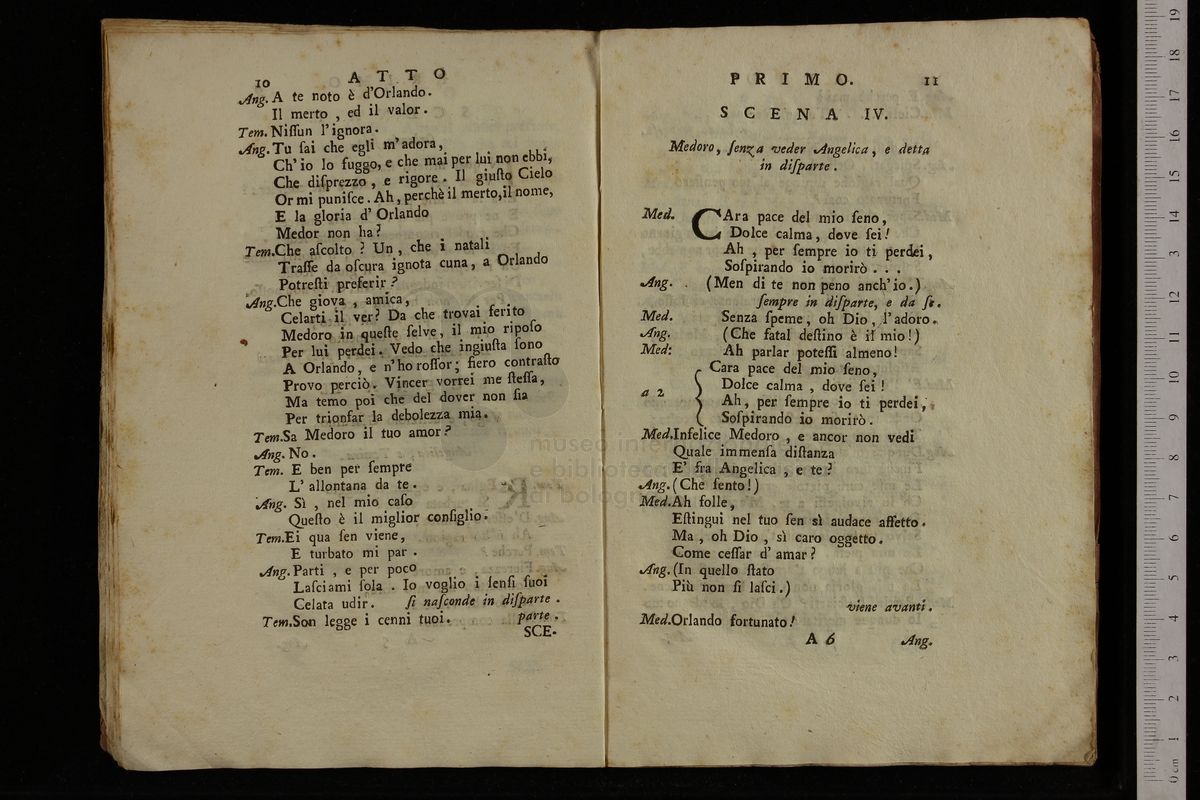 10 ATTO
Ang. A te noto è d'Orlando.
Il merto , ed il valor.
Tem. Niſſun l'ignora.
Ang. Tu ſai che egli m'adora,
Ch'io lo fuggo, e che mai per lui non ebbi,
Che diſprezzo , e rigore. Il giuſto Cielo
Or mi puniſce. Ah, perchè il merto, il nome,
E la gloria d' Orlando
Medor non ha?
Tem. Che aſcolto ? Un , che i natali
Traſſe da oſcura ignota cuna, a Orlando
Potreſti preferir?
Ang. Che giova , amica,
Celarti il ver? Da che trovai ferito
Medoro in queſte ſelve, il mio ripoſo
Per lui perdei. Vedo che ingiuſta ſono
A Orlando, e n'ho roſſor; fiero contraſto
Provo perciò. Vincer vorrei me ſteſſa,
Ma temo poi che del dover non ſia
Per trionfar la debolezza mia.
Tem. Sa Medoro il tuo amor?
Ang. No.
Tem. E ben per ſempre
L' allontana da te.
Ang. Sì , nel mio caſo
Queſto è il miglior conſiglio.
Tem. Ei qua ſen viene,
E turbato mi par.
Ang. Parti , e per poco
Laſciami ſola. Io voglio i ſenſi ſuoi
Celata udir. ſi naſconde in diſparte.
Tem. Son legge i cenni tuoi. parte.
SCE-
PRIMO. 11
SCENA IV.
Medoro, ſenza veder Angelica, e detta
in diſparte.
Med. CAra pace del mio ſeno,
Dolce calma, dove ſei!
Ah , per ſempre io ti perdei,
Soſpirando io morirò . . .
Ang. . (Men di te non peno anch'io.)
ſempre in diſparte, e da ſe.
Med. Senza ſpeme, oh Dio, l'adoro.
Ang. (Che fatal deſtino è il mio!)
Med: Ah parlar poteſſi almeno!
Cara pace del mio ſeno,
Dolce calma , dove ſei!
a 2 Ah, per ſempre io ti perdei,
Soſpirando io morirò.
Med. Infelice Medoro , e ancor non vedi
Quale immenſa diſtanza
E' fra Angelica , e te?
Ang. (Che ſento!)
Med. Ah folle,
Eſtingui nel tuo ſen sì audace affetto.
Ma , oh Dio , sì caro oggetto.
Come ceſſar d' amar?
Ang. (In quello ſtato
Più non ſi laſci.)
viene avanti.
Med. Orlando fortunato!
A 6 Ang.
museo inter
e biblioteca
di bologn
0 cm 1 2 3 4 5 6 7 8 9 10 11 12 13 14 15 16 17 18 19